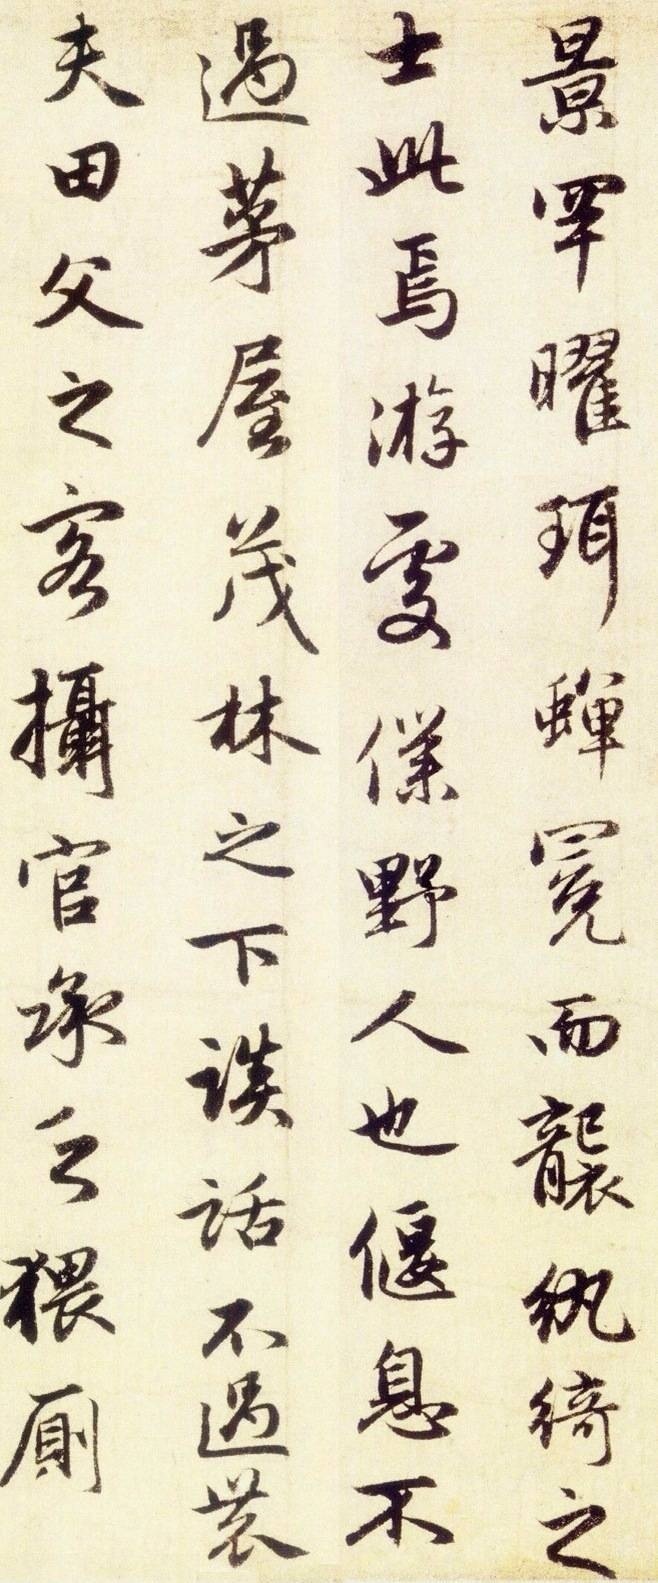 景罕曜珥蟬冕而襲紈綺之
士此焉游處僕野人也偃息不
過茅屋茂林之下談話不過農
夫田父之客攝官承乏猥廁